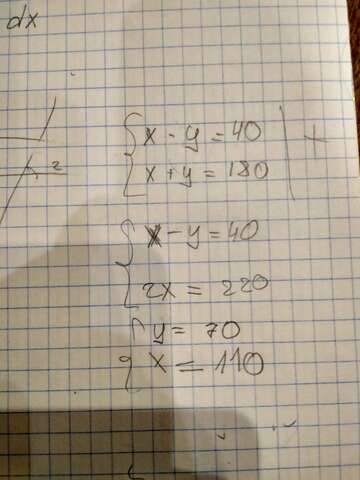 dx
x - y = 40 | +
x + y = 180
2
x - y = 40
2x = 220
y = 70
x = 110